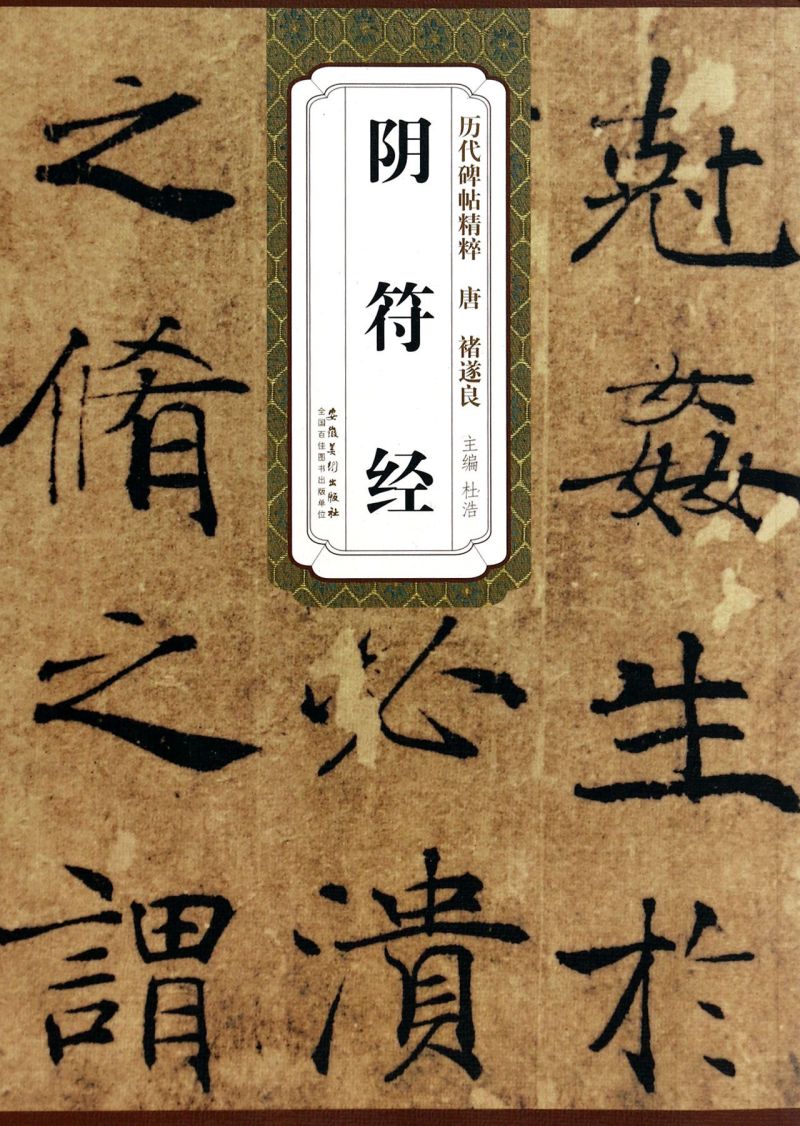 历代碑帖精粹 唐 褚遂良
主编 杜浩
阴符经
安徽美术出版社
全国百佳图书出版单位
尅姦生於
必潰
之脩之謂